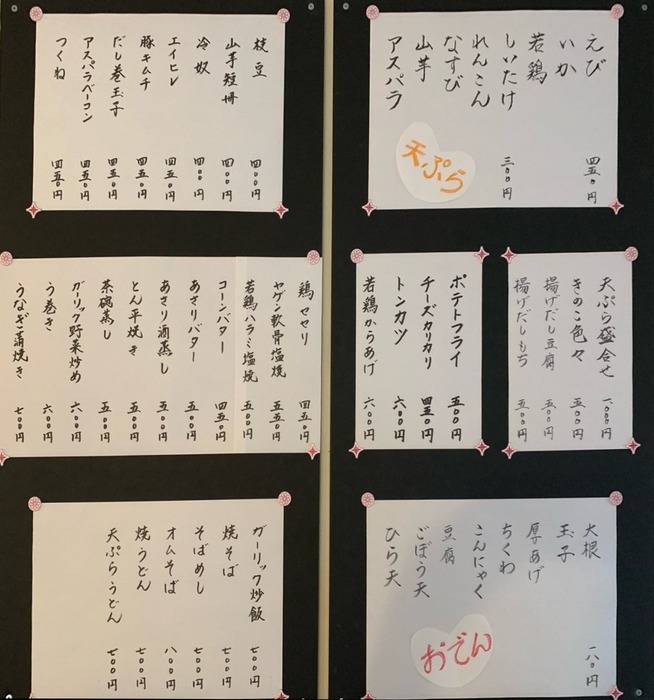 えび 四五〇円
いか
若鶏
しいたけ 三〇〇円
れんこん
なすび
山芋
アスパラ
天ぷら
枝豆 四〇〇円
山芋短冊 四〇〇円
冷奴 四〇〇円
エイヒレ 四五〇円
豚キムチ 四五〇円
だし巻玉子 四五〇円
アスパラベーコン 四五〇円
つくね 四五〇円
天ぷら盛合せ 一、〇〇〇円
きのこ色々 五〇〇円
揚げだし豆腐 五〇〇円
揚げだしもち 五〇〇円
ポテトフライ 五〇〇円
チーズカリカリ 四五〇円
トンカツ 六〇〇円
若鶏からあげ 六〇〇円
鶏セセリ 四五〇円
ヤゲン軟骨塩焼 五五〇円
若鶏ハラミ塩焼 五〇〇円
コーンバター 四五〇円
あさりバター 五〇〇円
あさり酒蒸し 五〇〇円
とん平焼き 五〇〇円
茶碗蒸し 五〇〇円
ガーリック野菜炒め 六〇〇円
う巻き 六〇〇円
うなぎ蒲焼き 七〇〇円
大根 一八〇円
玉子
厚あげ
ちくわ
こんにゃく
豆腐
ごぼう天
ひら天
おでん
ガーリック炒飯 七〇〇円
焼そば 七〇〇円
そばめし 七〇〇円
オムそば 八〇〇円
焼うどん 七〇〇円
天ぷらうどん 七〇〇円